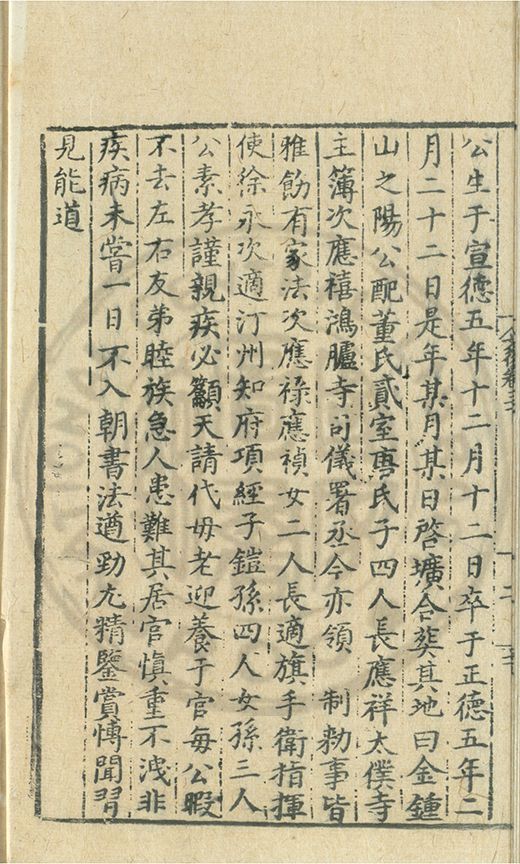 公生于宣德五年十二月十二日卒于正德五年二
月二十二日是年某月某日啓壙合葬其地曰金鍾
山之陽公配董氏貳室唐氏子四人長應祥太僕寺
主簿次應禧鴻臚寺司儀署丞今亦領　制勑事皆
雅飭有家法次應祿應禎女二人長適旗手衛指揮
使徐永次適汀州知府項經子鎧孫四人女孫三人
公素孝謹親疾必籲天請代毋老迎養于官每公暇
不去左右友弟睦族急人患難其居官慎重不洩非
疾病未嘗一日不入朝書法遒勁尤精鑒賞愽聞習
見能道